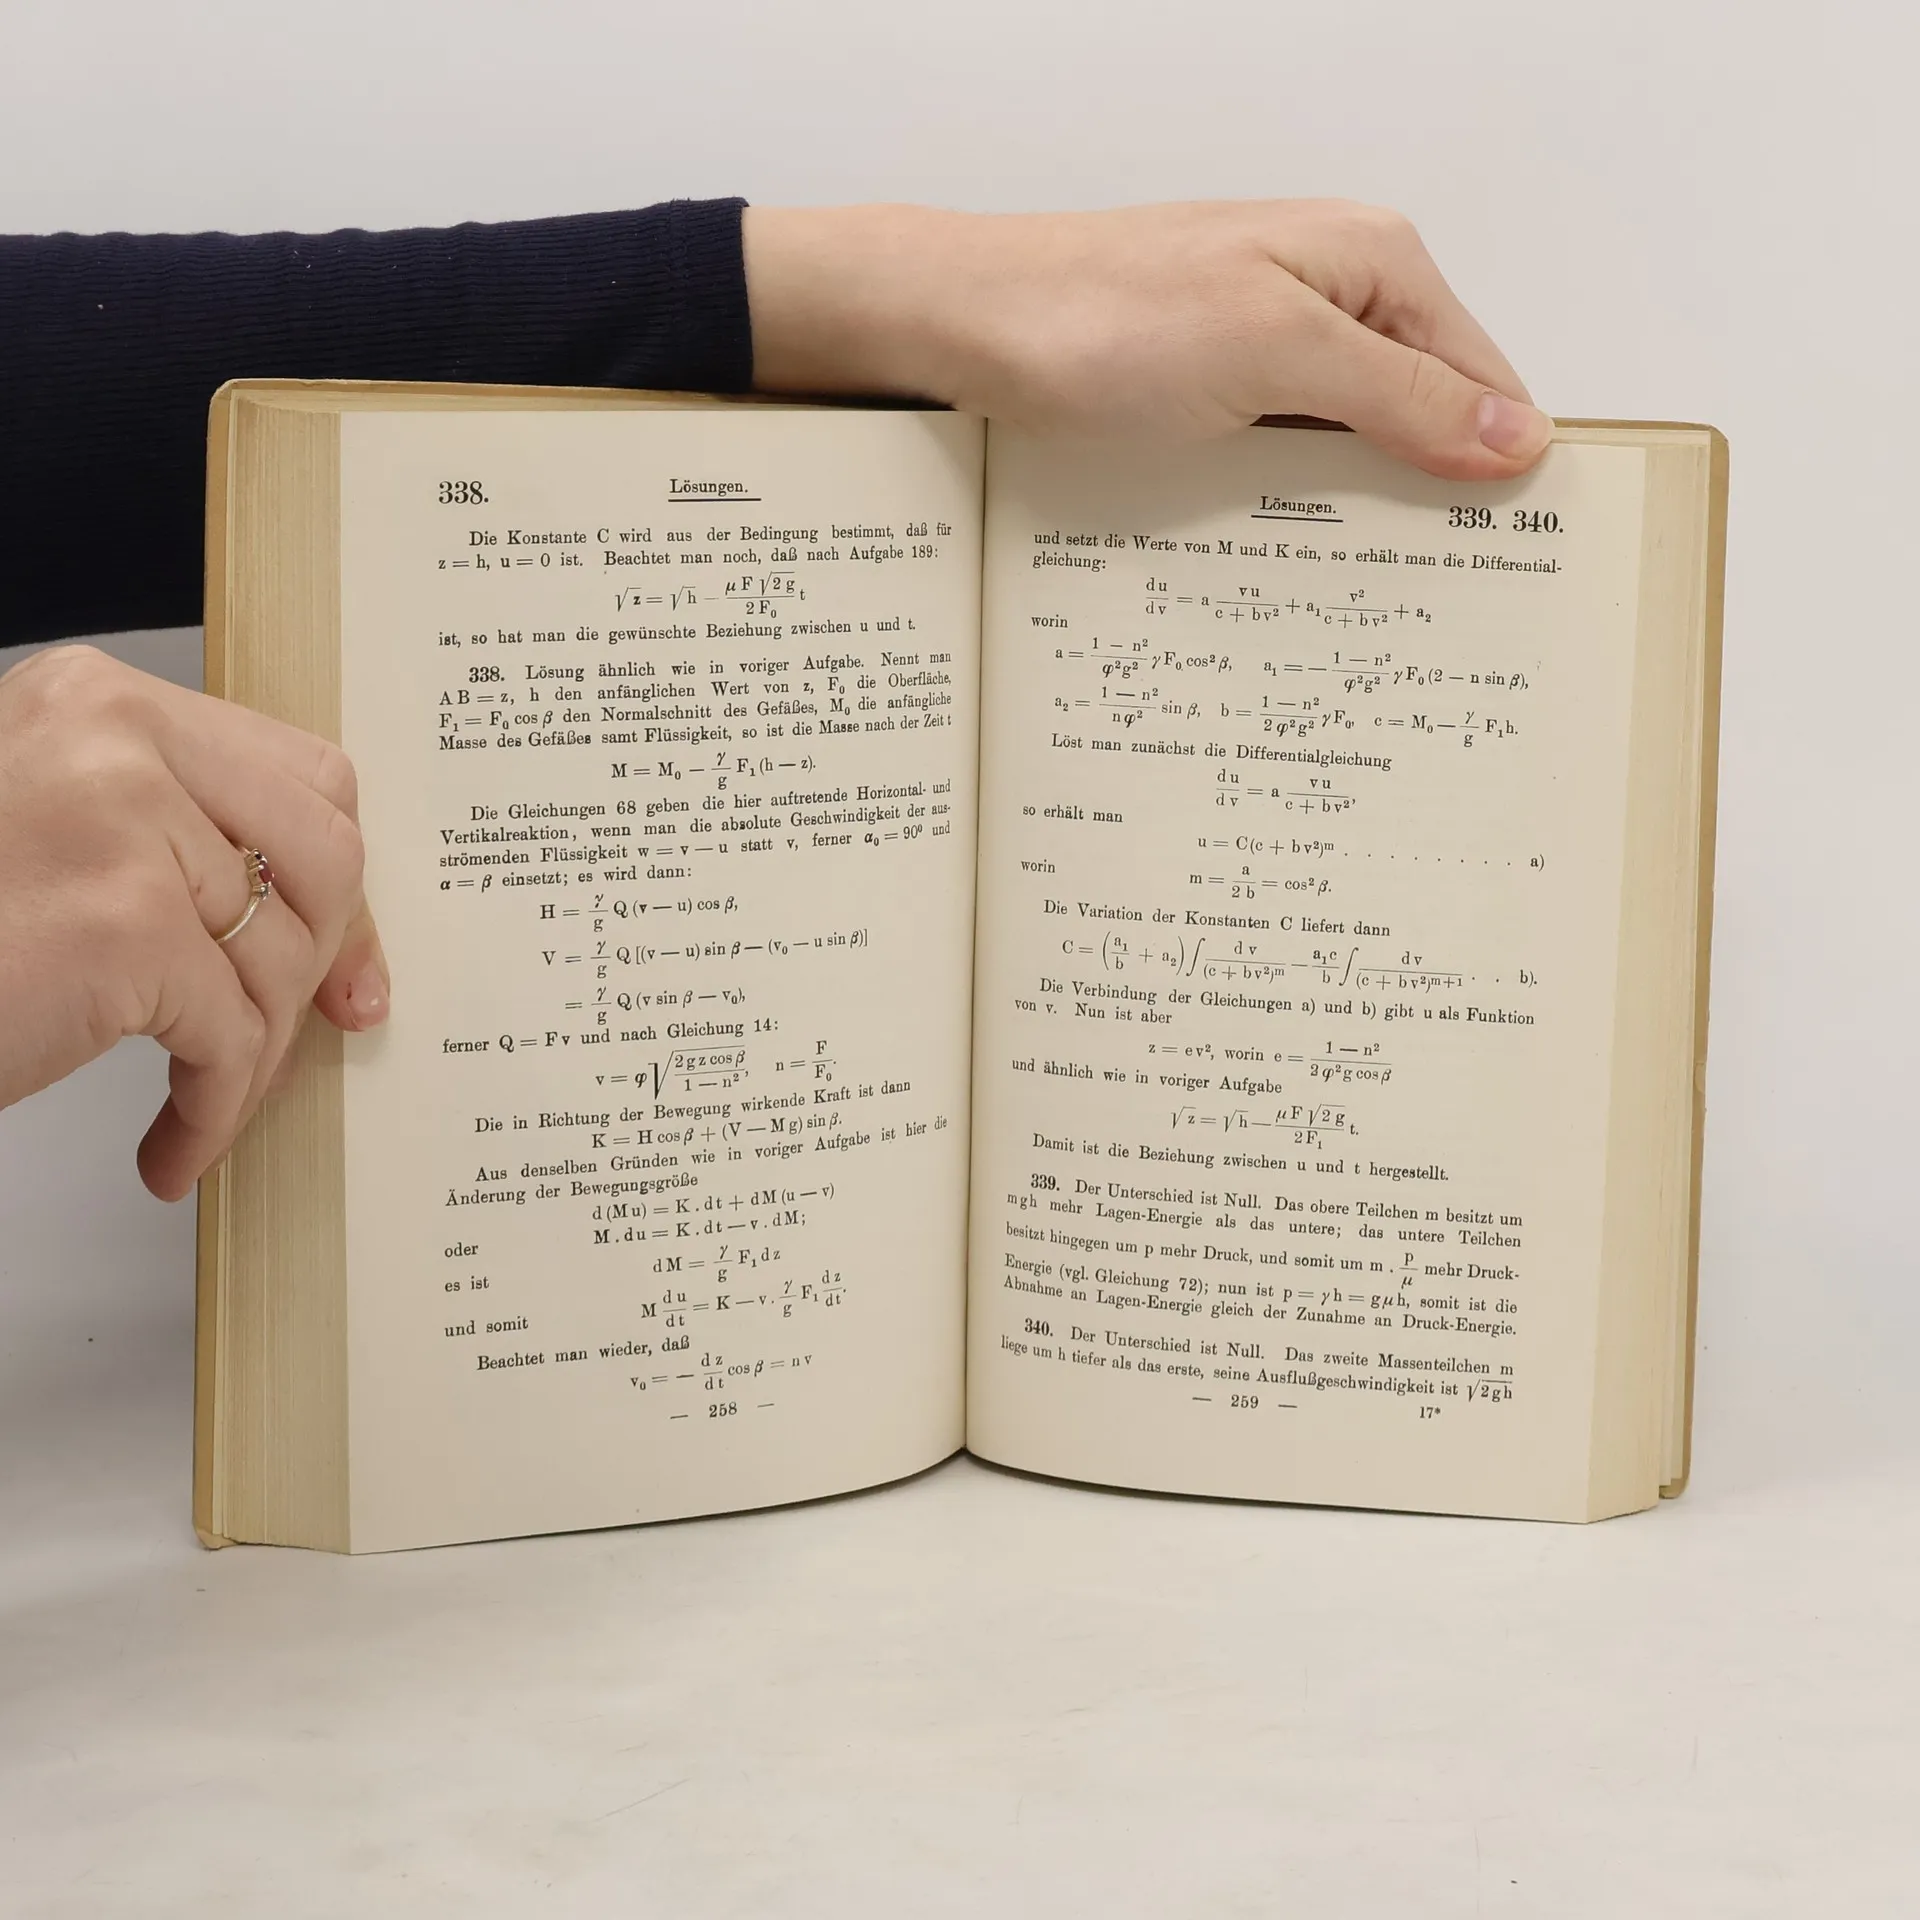 338.
Lösungen.
Die Konstante C wird aus der Bedingung bestimmt, daß für
z = h, u = 0 ist. Beachtet man noch, daß nach Aufgabe 189:
√z = √h − (μ F √2 g)/(2 F₀) t
ist, so hat man die gewünschte Beziehung zwischen u und t.
338. Lösung ähnlich wie in voriger Aufgabe. Nennt man
A B = z, h den anfänglichen Wert von z, F₀ die Oberfläche,
F₁ = F₀ cos β den Normalschnitt des Gefäßes, M₀ die anfängliche
Masse des Gefäßes samt Flüssigkeit, so ist die Masse nach der Zeit t
M = M₀ − γ/g F₁ (h − z).
Die Gleichungen 68 geben die hier auftretende Horizontal- und
Vertikalreaktion, wenn man die absolute Geschwindigkeit der aus-
strömenden Flüssigkeit w = v − u statt v, ferner α₀ = 90⁰ und
α = β einsetzt; es wird dann:
H = γ/g Q (v − u) cos β,
V = γ/g Q [(v − u) sin β − (v₀ − u sin β)]
= γ/g Q (v sin β − v₀),
ferner Q = F v und nach Gleichung 14:
v = φ √((2 g z cos β)/(1 − n²)), n = F/F₀.
Die in Richtung der Bewegung wirkende Kraft ist dann
K = H cos β + (V − M g) sin β.
Aus denselben Gründen wie in voriger Aufgabe ist hier die
Änderung der Bewegungsgröße
d (M u) = K . dt + dM (u − v)
oder M . du = K . dt − v . dM;
es ist dM = γ/g F₁ dz
und somit M du/dt = K − v . γ/g F₁ dz/dt.
Beachtet man wieder, daß
v₀ = − dz/dt cos β = n v
— 258 —
Lösungen.
339. 340.
und setzt die Werte von M und K ein, so erhält man die Differential-
gleichung:
du/dv = a (v u)/(c + b v²) + a₁ v²/(c + b v²) + a₂
worin
a = (1 − n²)/(φ²g²) γ F₀ cos² β, a₁ = − (1 − n²)/(φ²g²) γ F₀ (2 − n sin β),
a₂ = (1 − n²)/(n φ²) sin β, b = (1 − n²)/(2 φ²g²) γ F₀, c = M₀ − γ/g F₁h.
Löst man zunächst die Differentialgleichung
du/dv = a (v u)/(c + b v²),
so erhält man
u = C (c + b v²)ᵐ . . . . . . . . a)
worin
m = a/(2 b) = cos² β.
Die Variation der Konstanten C liefert dann
C = (a₁/b + a₂) ∫ dv/(c + b v²)ᵐ − (a₁c)/b ∫ dv/(c + b v²)ᵐ⁺¹ . . b).
Die Verbindung der Gleichungen a) und b) gibt u als Funktion
von v. Nun ist aber
z = e v², worin e = (1 − n²)/(2 φ²g cos β)
und ähnlich wie in voriger Aufgabe
√z = √h − (μ F √2 g)/(2 F₁) t.
Damit ist die Beziehung zwischen u und t hergestellt.
339. Der Unterschied ist Null. Das obere Teilchen m besitzt um
mgh mehr Lagen-Energie als das untere; das untere Teilchen
besitzt hingegen um p mehr Druck, und somit um m . p/μ mehr Druck-
Energie (vgl. Gleichung 72); nun ist p = γ h = g μ h, somit ist die
Abnahme an Lagen-Energie gleich der Zunahme an Druck-Energie.
340. Der Unterschied ist Null. Das zweite Massenteilchen m
liege um h tiefer als das erste, seine Ausflußgeschwindigkeit ist √2 g h
— 259 —
17*